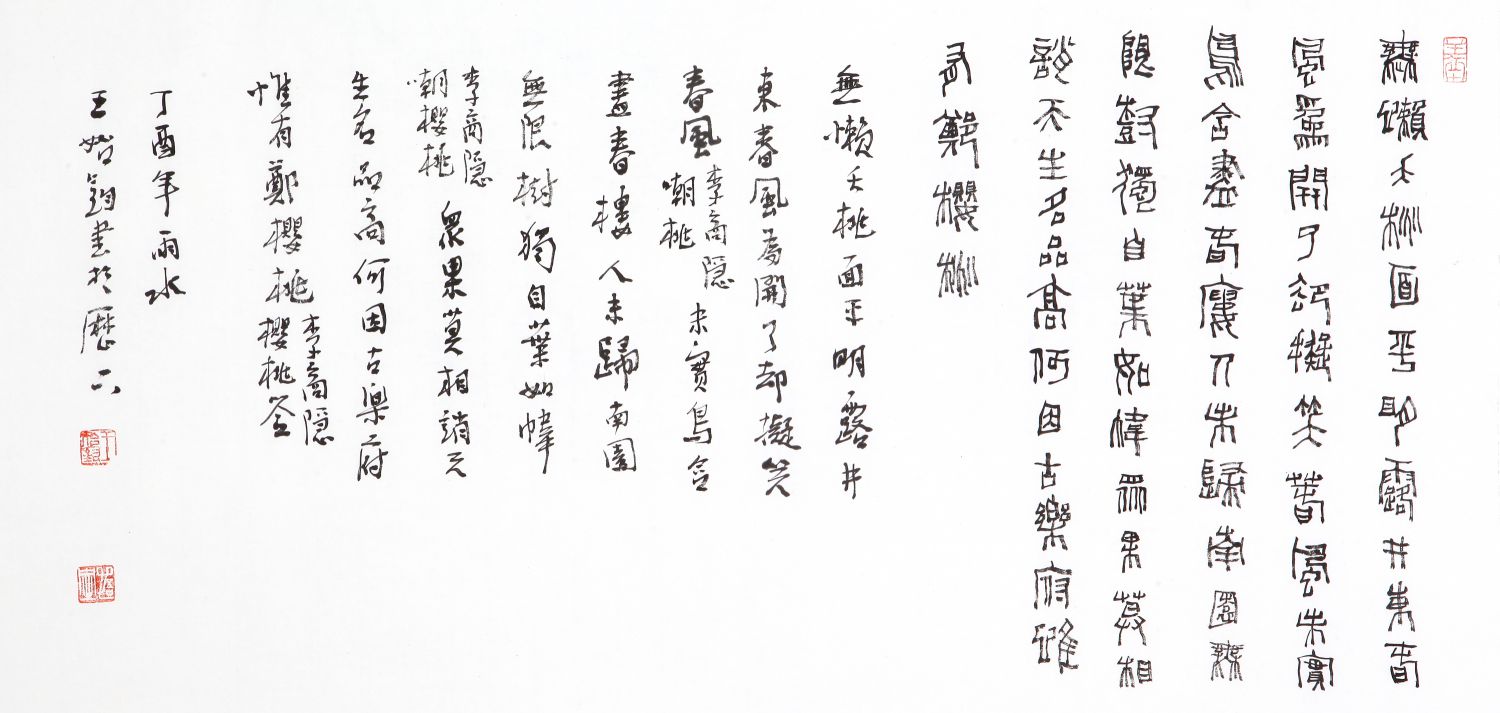 無懶夭桃面平明露井東春
風為開了却擬笑春風未實
鳥含盡春樓人未歸南園無
限樹獨自葉如幃眾果莫相
誚天生名品高何因古樂府惟
有鄭櫻桃
無懶夭桃面平明露井
東春風為開了却擬笑
春風李商隱嘲桃未實鳥含
盡春樓人未歸南園
無限樹獨自葉如幃
李商隱嘲櫻桃眾果莫相誚天
生名品高何因古樂府
惟有鄭櫻桃李商隱櫻桃答
丁酉年雨水
王始鈞書於歷下